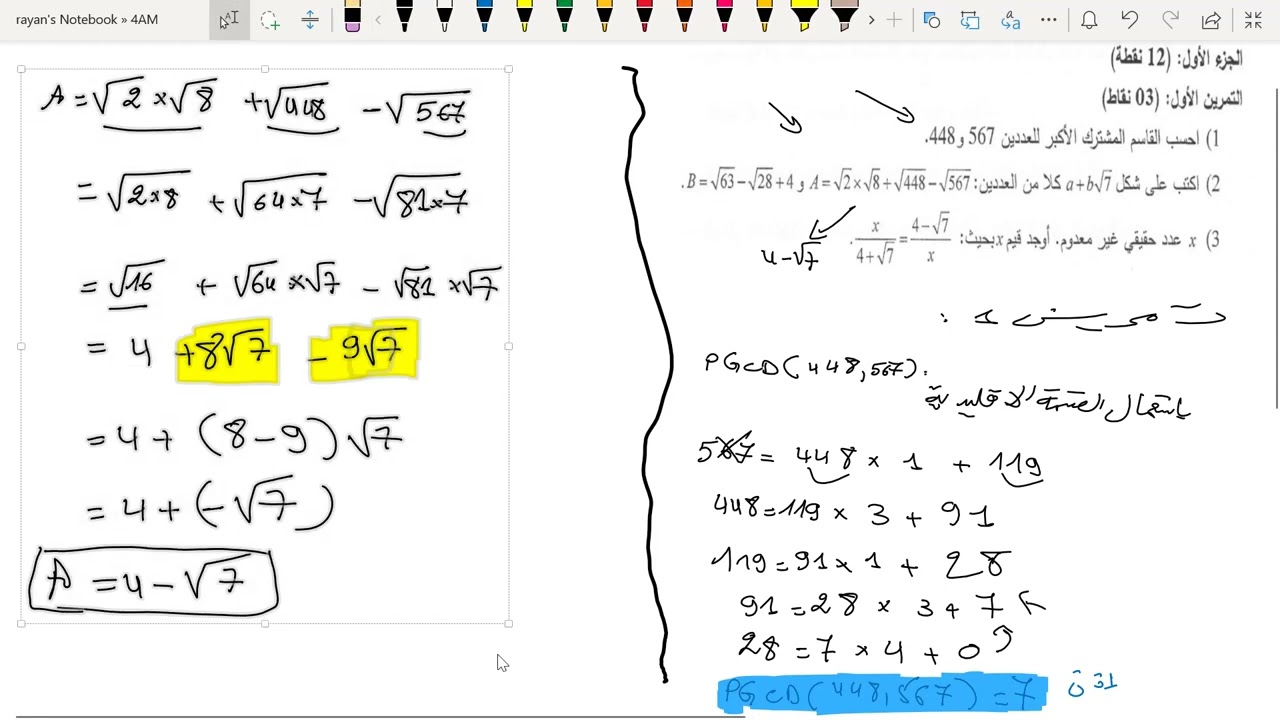 rayan's Notebook » 4AM
A = √2 × √8 + √448 − √567
= √2×8 + √64×7 − √81×7
= √16 + √64 × √7 − √81 × √7
= 4 +8√7 − 9√7
= 4 + (8 − 9) √7
= 4 + (−√7)
A = 4 − √7
الجزء الأول: (12 نقطة)
التمرين الأول: (03 نقاط)
1) احسب القاسم المشترك الأكبر للعددين 567 و 448.
2) اكتب على شكل a+b√7 كلا من العددين: A=√2×√8+√448−√567 و B=√63−√28+4.
3) x عدد حقيقي غير معدوم. أوجد قيم x بحيث: x/(4+√7) = (4−√7)/x.
4−√7
PGCD(448,567).
567 = 448 × 1 + 119
448 = 119 × 3 + 91
119 = 91 × 1 + 28
91 = 28 × 3 + 7
28 = 7 × 4 + 0
PGCD(448,567) = 7